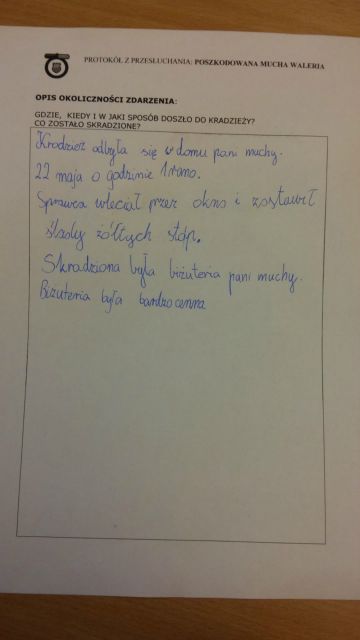 PROTOKÓŁ Z PRZESŁUCHANIA: POSZKODOWANA MUCHA WALERIA
OPIS OKOLICZNOŚCI ZDARZENIA:
GDZIE, KIEDY I W JAKI SPOSÓB DOSZŁO DO KRADZIEŻY?
CO ZOSTAŁO SKRADZIONE?
Kradzież odbyła się w domu pani muchy.
22 maja o godzinie 1 rano.
Sprawca wleciał przez okno i zostawił
ślady żółtych stóp.
Skradziona była biżuteria pani muchy.
Biżuteria była bardzo cenna